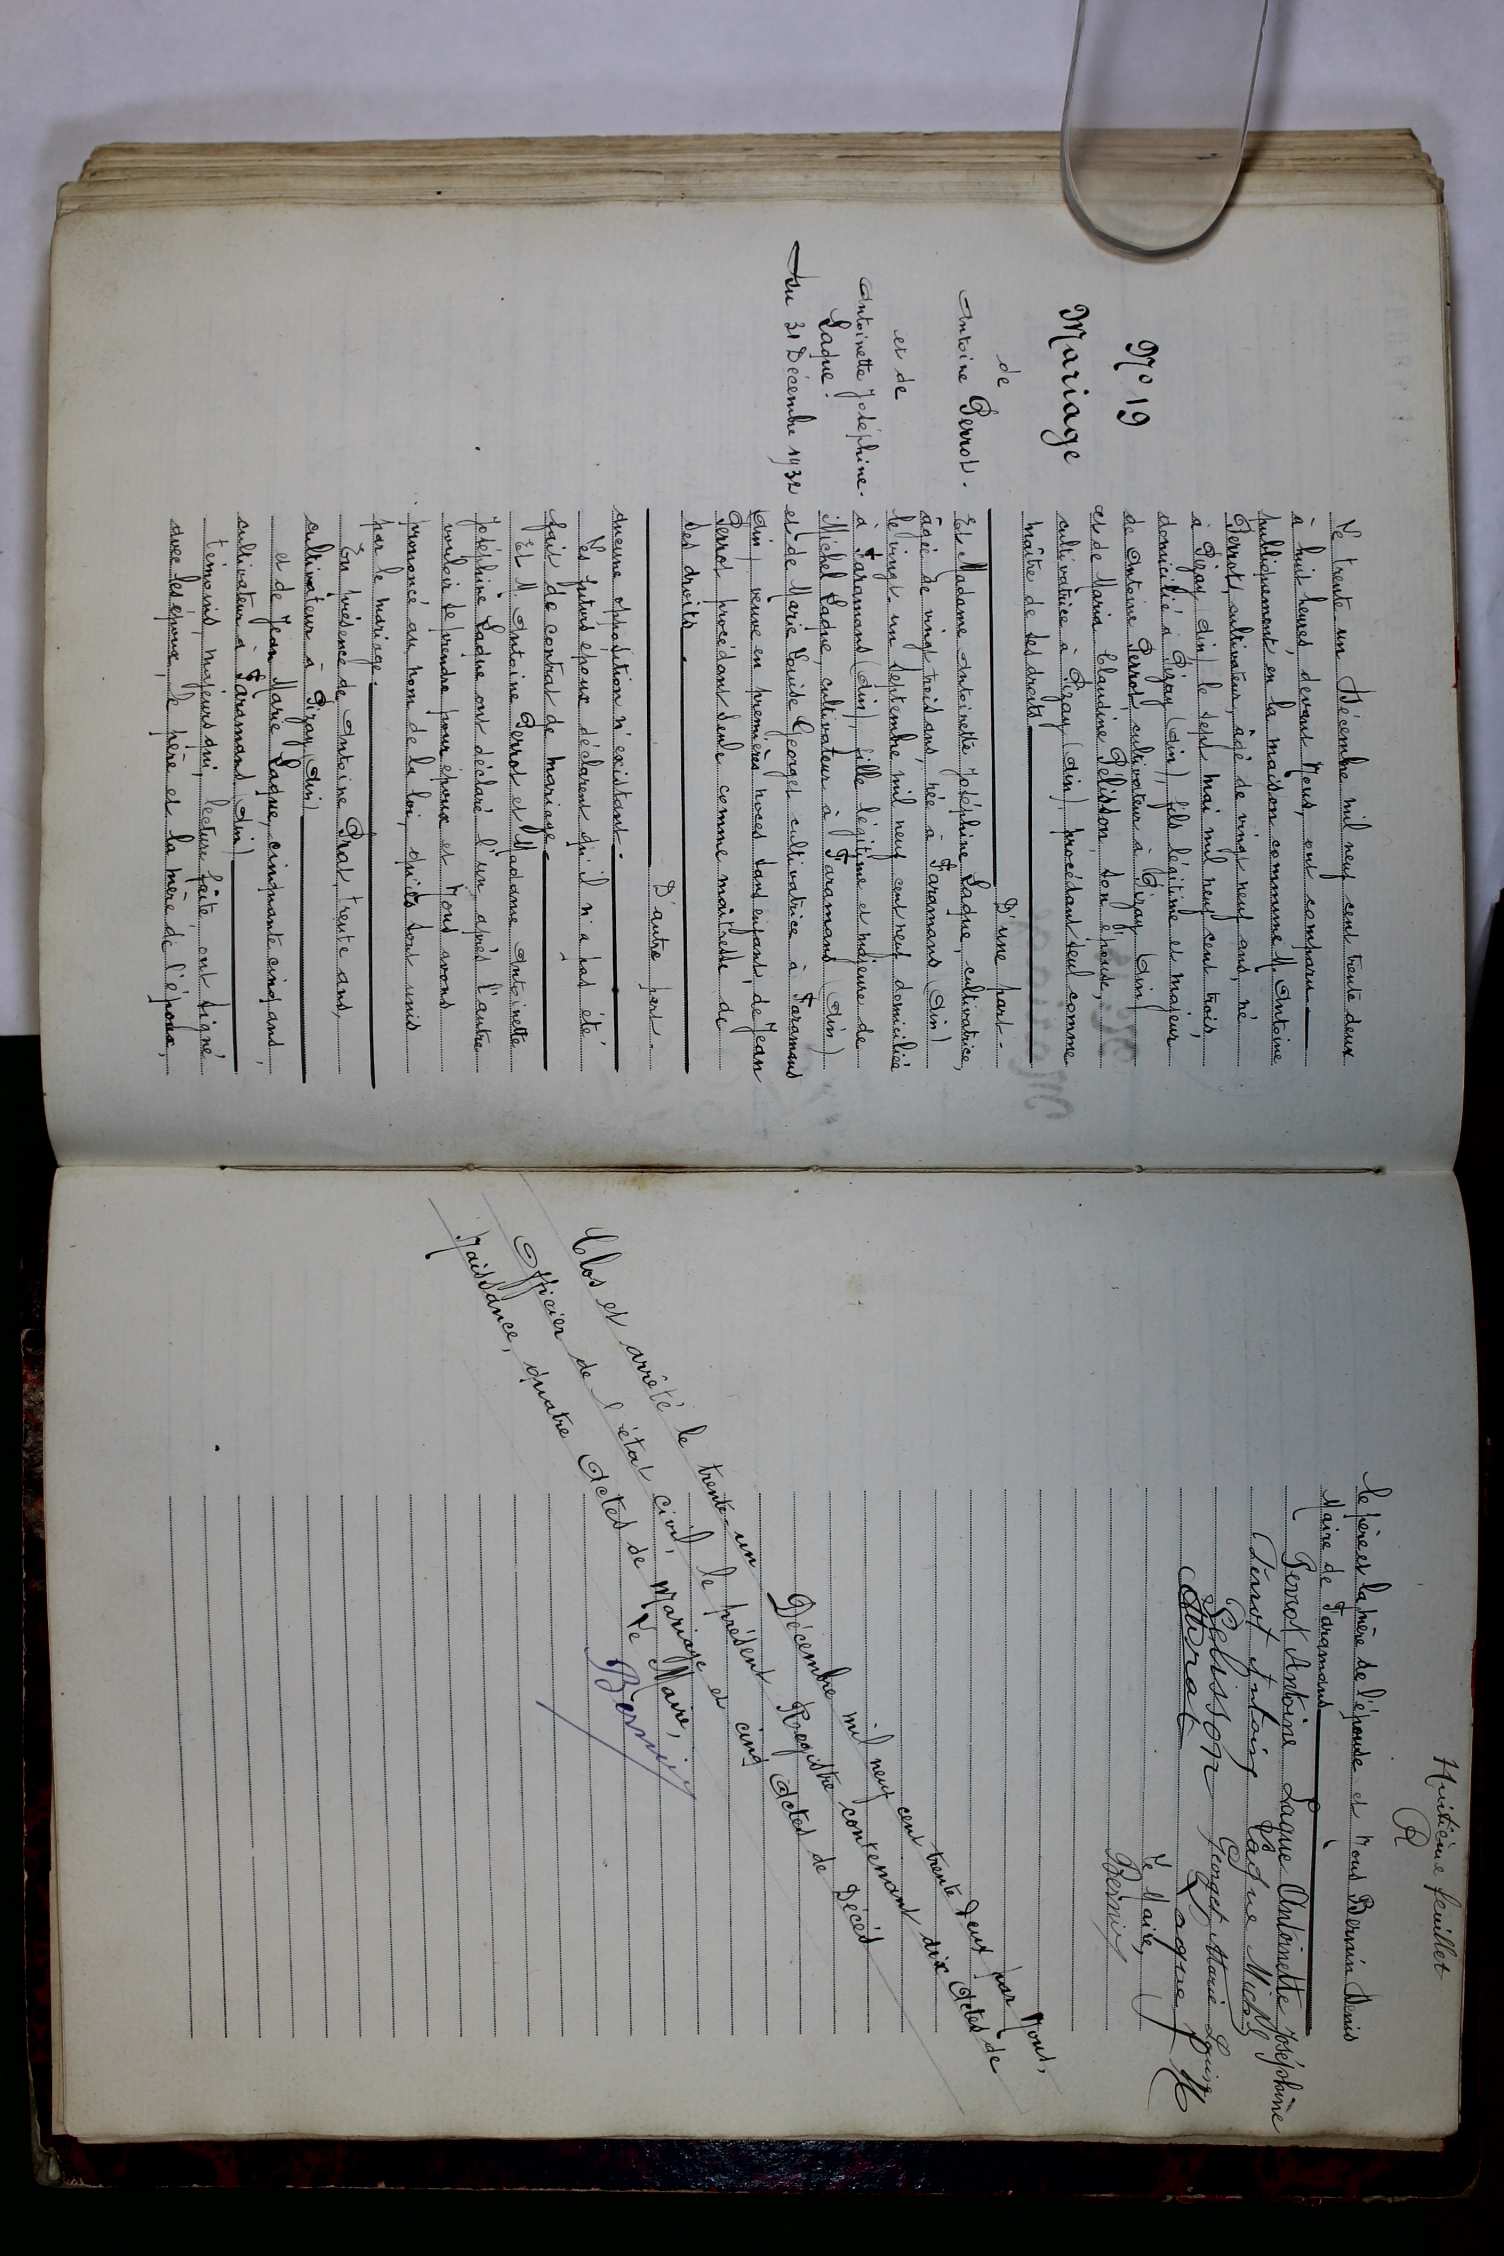 No 19
Mariage
de
Antoine Perrot.
et de
Antoinette Joséphine.
Laque.
Du 31 Décembre 1932
Le trente-un Décembre mil neuf cent trente deux
à huit heures, devant Nous, ont comparu
publiquement en la maison commune M. Antoine
Perrot, cultivateur, âgé de vingt neuf ans, né
à Pizay (Ain) le sept mai mil neuf cent trois,
domicilié à Pizay (Ain) fils légitime et majeur
de Antoine Perrot, cultivateur à Pizay (Ain)
et de Maria Claudine Pélisson, son épouse,
cultivatrice à Pizay (Ain) procédant seul comme
maître de ses droits
D'une part.
Et Madame Antoinette Joséphine Laque, cultivatrice,
âgée de vingt trois ans, née à Faramans (Ain)
le vingt-un septembre mil neuf cent neuf domiciliée
à Faramans (Ain), fille légitime et majeure de
Michel Laque, cultivateur à Faramans (Ain)
et de Marie Louise Georget cultivatrice à Faramans
(Ain) veuve en premières noces sans enfant, de Jean
Perrot procédant seule comme maîtresse de
ses droits
D'autre part.
aucune opposition n'existant.
Les futurs époux déclarent qu'il n'a pas été
fait de contrat de mariage.
Et M. Antoine Perrot et Madame Antoinette
Joséphine Laque ont déclaré l'un après l'autre
vouloir se prendre pour époux et Nous avons
prononcé au nom de la loi, qu'ils sont unis
par le mariage.
En présence de Antoine Prat, trente ans,
cultivateur à Pizay (Ain)
et de Jean Marie Laque, cinquante cinq ans,
cultivateur à Faramans (Ain)
témoins majeurs qui, lecture faite ont signé
avec les époux, le père et la mère de l'époux,
Huitième feuillet
R
le père et la mère de l'épouse et Nous Bernin Denis
Maire de Faramans
Perrot Antoine Laque Antoinette Joséphine
Perrot Antoine Laque Michel
Pelisson Georget Marie Louise
APrat Laque J M
Le Maire,
Bernin
Clos et arrêté le trente-un Décembre mil neuf cent trente deux par Nous,
Officier de l'état civil, le présent Registre contenant dix Actes de
Naissance, quatre Actes de Mariage et cinq Actes de Décès
Le Maire,
Bernin